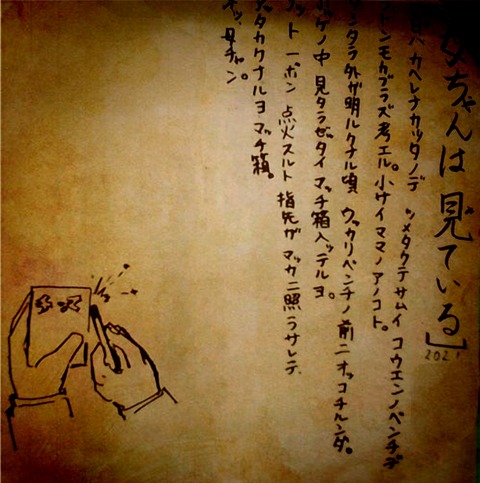 ちゃんは見ている」
2021
カヘレナカッタノデ ツメタクテサムイ コウエンノベンチデ
トンモカブラズ考エル。小サイママノアノコト。
タラ外ガ明ルクナル頃 ウッカリベンチノ前ニオッコチルンダ。
ゲノ中 見タラゼッタイ マッチ箱入ッテルヨ。
ット 一ポン 点火スルト 指先ガ マッカニ照ラサレテ
タカクナルヨ マッチ箱。
母チャン。